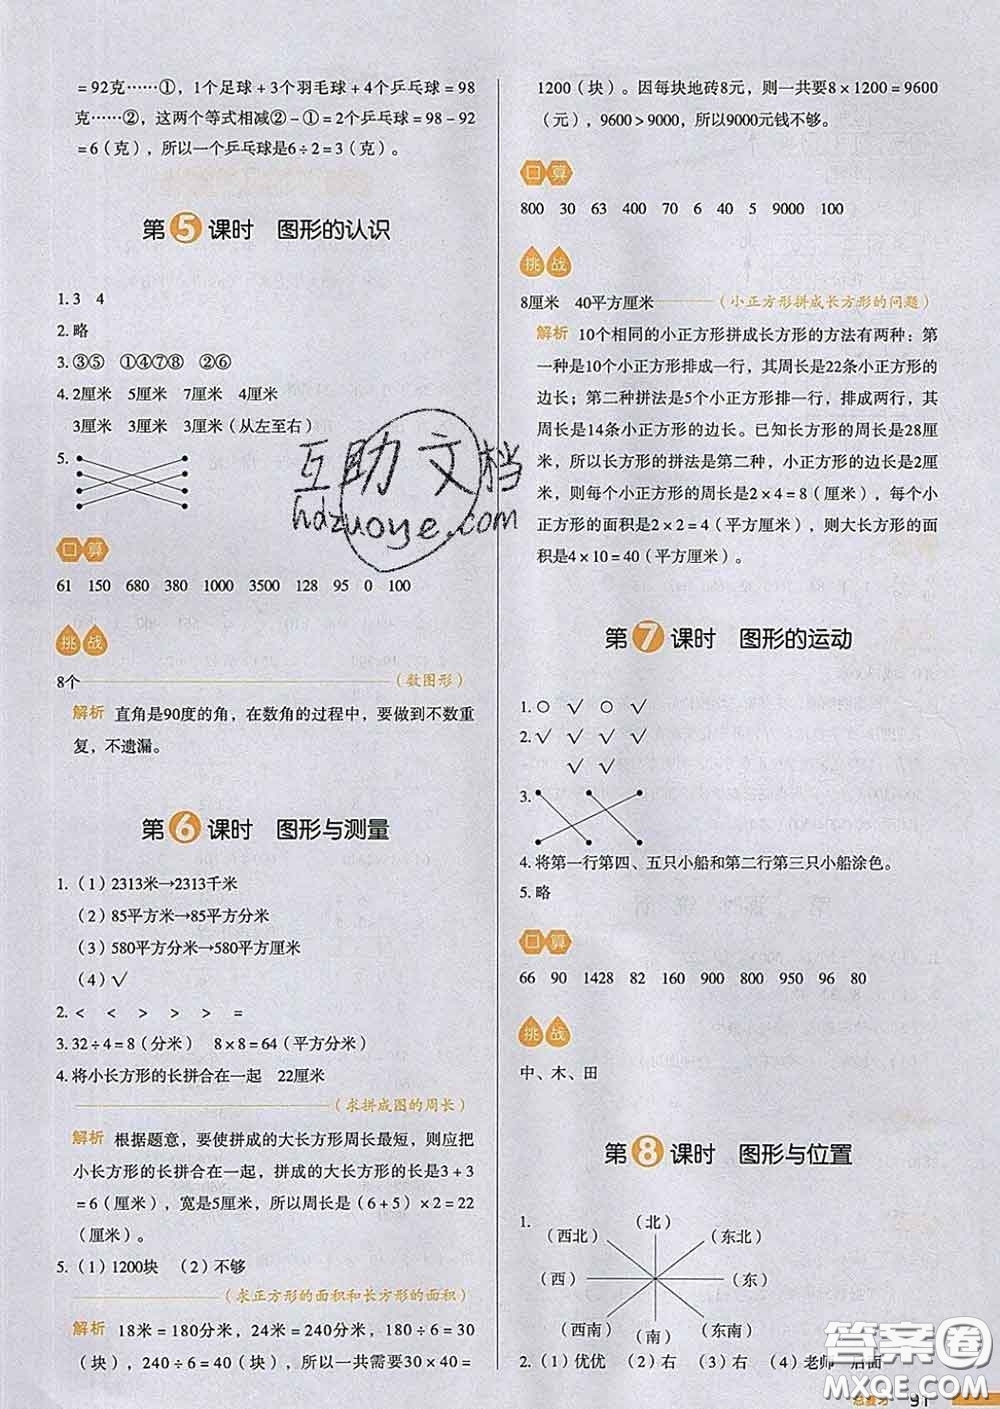 =92克……①，1个足球+3个羽毛球+4个乒乓球=98
克……②，这两个等式相减②-①=2个乒乓球=98-92
=6（克），所以一个乒乓球是6÷2=3（克）。
第5课时 图形的认识
1.3 4
2.略
3.③⑤ ①④⑦⑧ ②⑥
4.2厘米 5厘米 7厘米 4厘米
3厘米 3厘米 3厘米（从左至右）
5.
口算
61 150 680 380 1000 3500 128 95 0 100
挑战
8个 （数图形）
解析 直角是90度的角，在数角的过程中，要做到不数重
复，不遗漏。
第6课时 图形与测量
1.（1）2313米→2313千米
（2）85平方米→85平方分米
（3）580平方分米→580平方厘米
（4）√
2.< < > > > =
3.32÷4=8（分米） 8×8=64（平方分米）
4.将小长方形的长拼合在一起 22厘米
（求拼成图的周长）
解析 根据题意，要使拼成的大长方形周长最短，则应把
小长方形的长拼合在一起，拼成的大长方形的长是3+3
=6（厘米），宽是5厘米，所以周长是（6+5）×2=22
（厘米）。
5.（1）1200块 （2）不够
（求正方形的面积和长方形的面积）
解析 18米=180分米，24米=240分米，180÷6=30
（块），240÷6=40（块），所以一共需要30×40=
1200（块）。因每块地砖8元，则一共要8×1200=9600
（元），9600>9000，所以9000元钱不够。
口算
800 30 63 400 70 6 40 5 9000 100
挑战
8厘米 40平方厘米 （小正方形拼成长方形的问题）
解析 10个相同的小正方形拼成长方形的方法有两种：第
一种是10个小正方形排成一行，周长是22条小正方形的
边长；第二种拼法是5个小正方形排一行，排成两行，其
周长是14条小正方形的边长。已知长方形的周长是28厘
米，所以长方形的拼法是第二种，小正方形的边长是2厘
米，则每个小正方形的周长是2×4=8（厘米），每个小
正方形的面积是2×2=4（平方厘米），则大长方形的面
积是4×10=40（平方厘米）。
第7课时 图形的运动
1.○ √ ○ √
2.√ √ √ √
√ √
3.
4.将第一行第四、五只小船和第二行第三只小船涂色。
5.略
口算
66 90 1428 82 160 900 800 950 96 80
挑战
中、木、田
第8课时 图形与位置
1.
（北）
（西北） （东北）
（西） （东）
（西南） （南） （东南）
2.（1）优优 （2）右 （3）右 （4）老师 后面
总复习 91
互助文档
hdzuoye.com
答案圈
MXQE.COM